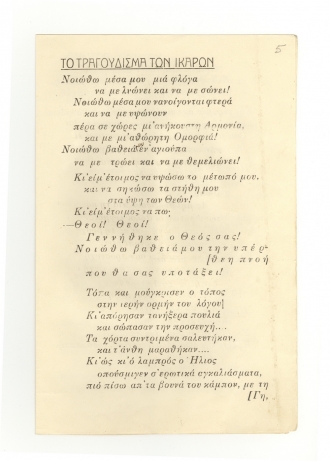 5
ΤΟ ΤΡΑΓΟΥΔΙΣΜΑ ΤΩΝ ΙΚΑΡΩΝ
Νοιώθω μέσα μου μιά φλόγα
να με λυώνει και να με σώνει!
Νοιώθω μέσα μου νανοίγονται φτερά
και να με υψώνουν
πέρα σε χώρες μ' ανήκουστη Αρμονία,
και με μι' αθώρητη Ομορφιά!
Νοιώθω βαθειά έν' αγιούπα
να με τρώει και να με θεμελιώνει!
Κι είμ' έτοιμος να υψώσω το μέτωπό μου,
και να σηκώσω τα στήθη μου
στα ύψη των Θεών!
Κι είμ' έτοιμος να πω:
—Θεοί! Θεοί!
Γεννήθηκε ο Θεός σας!
Νοιώθω βαθειά μου την υπέρ-
[θεη πνοή
που θα σας υποτάξει!
Τότα και μούγκρισεν ο τόπος
στην ιερήν ορμήν του λόγου]
Κι απόρησαν τανήξερα πουλιά
και σώπασαν την προσευχή...
Τα χόρτα συντριμένα σαλευτήκαν,
και τ' άνθη μαραθήκαν....
Κι ώς κι ό λαμπρός ο Ήλιος
οπούσμιγεν σ' ερωτικά αγκαλιάσματα,
πιό πίσω απ' τα βουνά του κάμπου, με τη
[Γη,